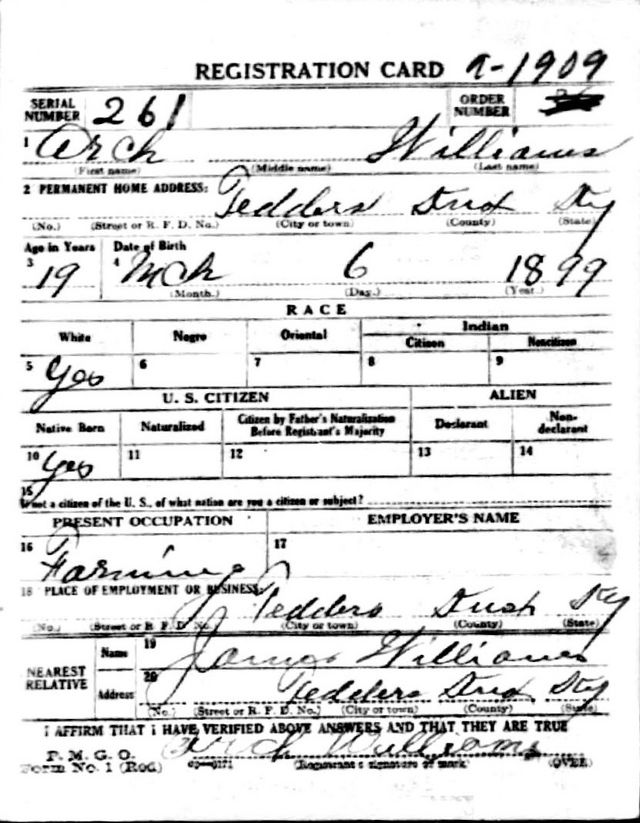 REGISTRATION CARD A-1909
SERIAL NUMBER 261 ORDER NUMBER
1 Arch Williams
(First name) (Middle name) (Last name)
2 PERMANENT HOME ADDRESS: Tedders Knox Ky
(No.) (Street or R. F. D. No.) (City or town) (County) (State)
Age in Years Date of Birth
3 19 4 Mch 6 1899
(Month.) (Day.) (Year.)
RACE
White Negro Oriental Indian
Citizen Noncitizen
5 Yes 6 7 8 9
U. S. CITIZEN ALIEN
Native Born Naturalized Citizen by Father's Naturalization Before Registrant's Majority Declarant Non-declarant
10 Yes 11 12 13 14
15
If not a citizen of the U. S., of what nation are you a citizen or subject?
PRESENT OCCUPATION EMPLOYER'S NAME
16 Farming 17
18 PLACE OF EMPLOYMENT OR BUSINESS:
Tedders Knox Ky
(No.) (Street or R. F. D. No.) (City or town) (County) (State)
NEAREST RELATIVE Name 19 Williams
Address 20 Tedders Knox Ky
(No.) (Street or R. F. D. No.) (City or town) (County) (State)
I AFFIRM THAT I HAVE VERIFIED ABOVE ANSWERS AND THAT THEY ARE TRUE
P. M. G. O.
Form No. 1 (Red) Arch Williams
(Registrant's signature or mark) (OVER)